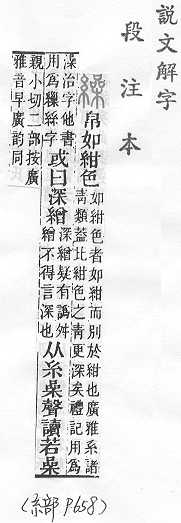 說文解字
段注本
繰 帛如紺色 如紺色者如紺而別於紺也廣雅系諸
青類葢比紺色之青更深矣禮記用為
澡治字他書
用為繅絲字 或曰深繒 深繒疑有譌舛
繒不得言深也 从糸喿聲讀若喿
親小切二部按廣
雅音早廣韵同
(糸部 P658)